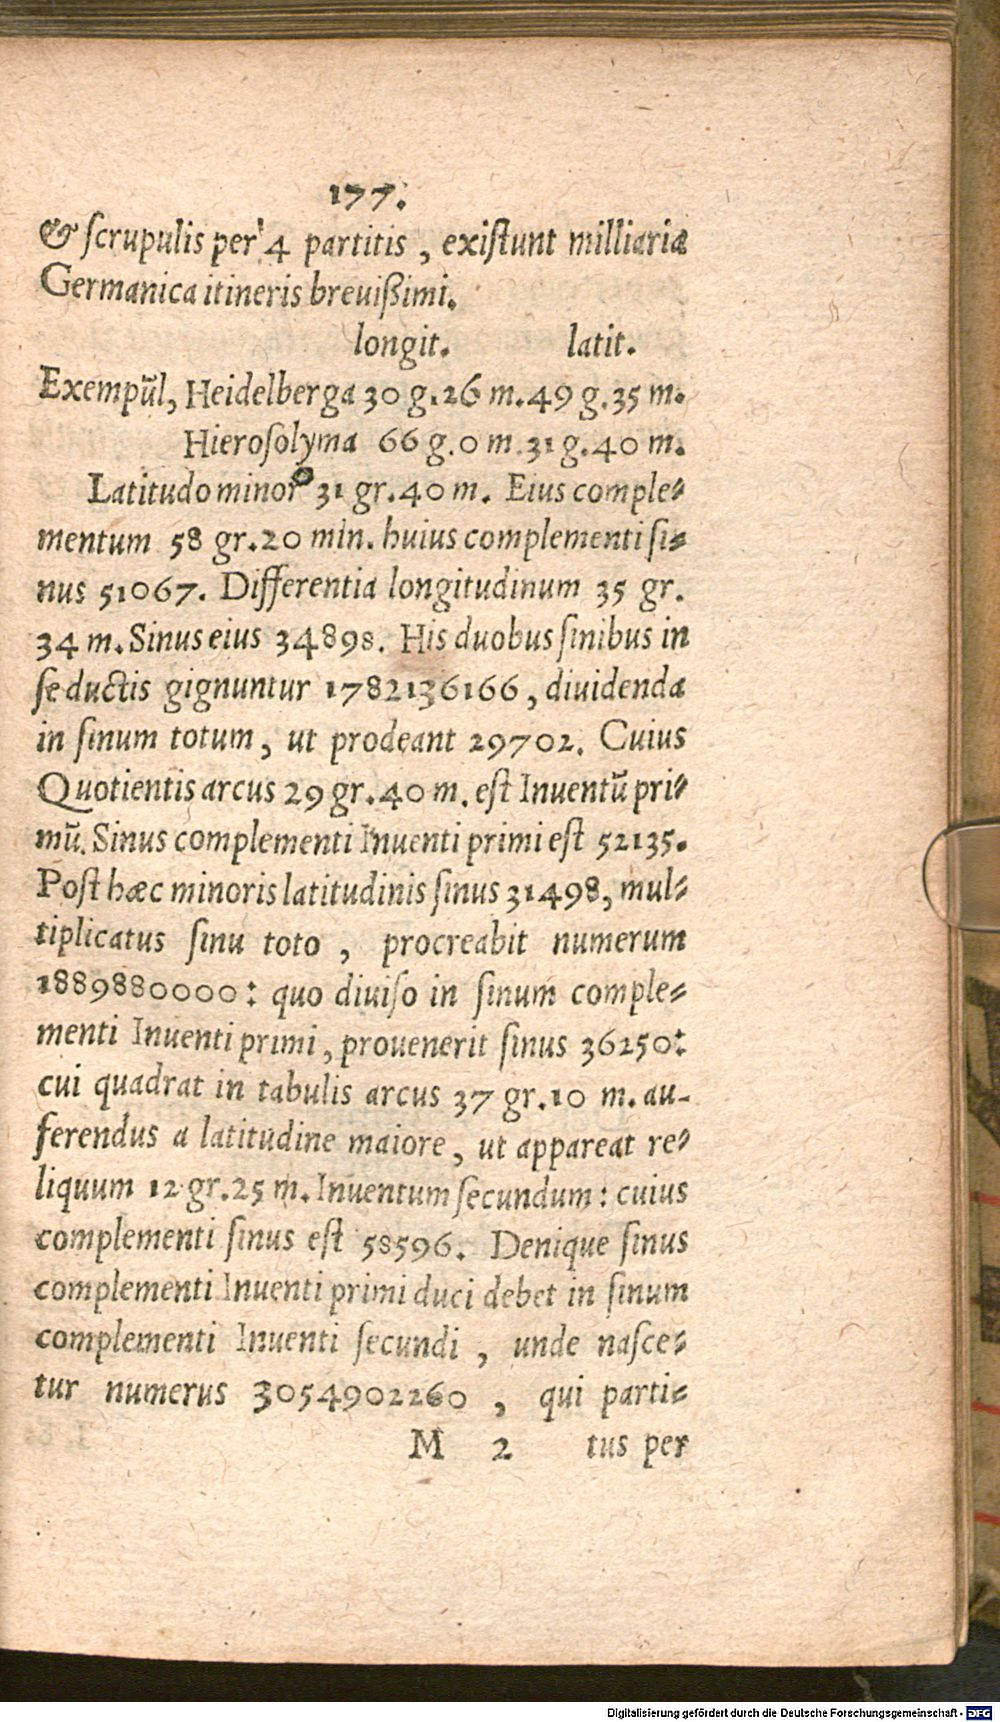 177.
& scrupulis per 4 partitis, existunt milliaria
Germanica itineris breuißimi.
longit. latit.
Exempũl, Heidelberga 30 g. 26 m. 49 g. 35 m.
Hierosolyma 66 g. 0 m. 31 g. 40 m.
Latitudo minor 31 gr. 40 m. Eius comple-
mentum 58 gr. 20 min. huius complementi si-
nus 51067. Differentia longitudinum 35 gr.
34 m. Sinus eius 34898. His duobus sinibus in
se ductis gignuntur 1782136166, diuidenda
in sinum totum, ut prodeant 29702. Cuius
Quotientis arcus 29 gr. 40 m. est Inuentũ pri-
mũ. Sinus complementi Inuenti primi est 52135.
Post hæc minoris latitudinis sinus 31498, mul-
tiplicatus sinu toto, procreabit numerum
1889880000: quo diuiso in sinum comple-
menti Inuenti primi, prouenerit sinus 36250:
cui quadrat in tabulis arcus 37 gr. 10 m. au-
ferendus a latitudine maiore, ut appareat re-
liquum 12 gr. 25 m. Inuentum secundum: cuius
complementi sinus est 58596. Denique sinus
complementi Inuenti primi duci debet in sinum
complementi Inuenti secundi, unde nasce-
tur numerus 3054902260, qui parti-
M 2 tus per
Digitalisierung gefördert durch die Deutsche Forschungsgemeinschaft - DFG